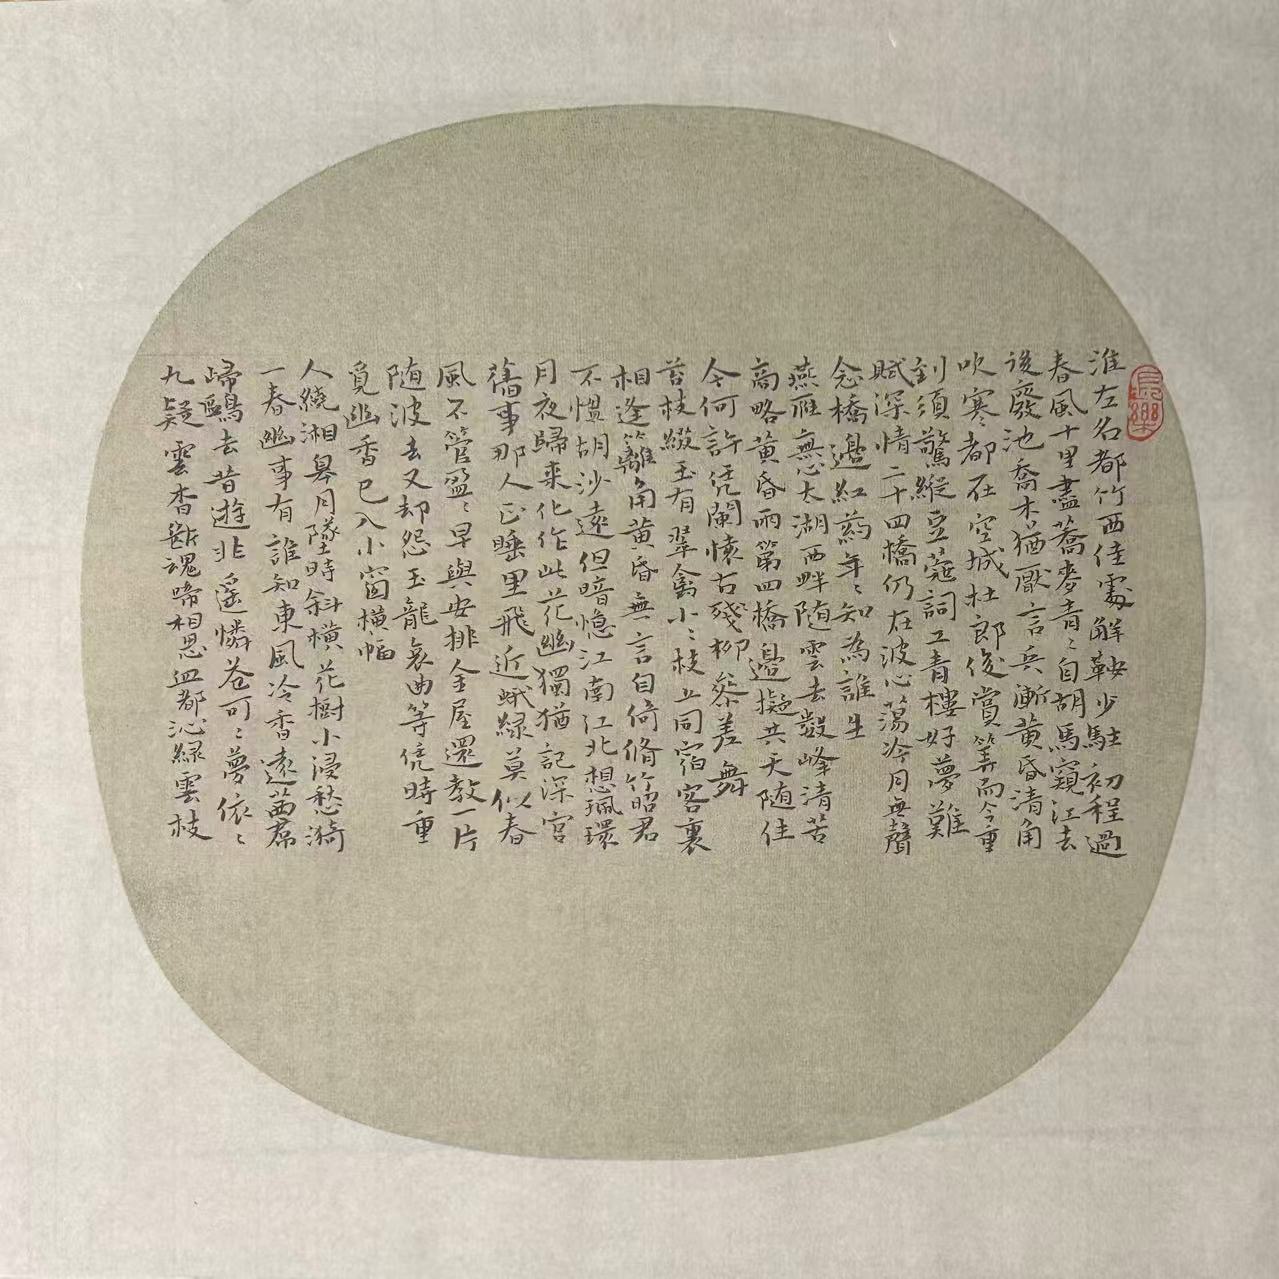 長樂
淮左名都竹西佳處解鞍少駐初程過
春風十里盡蕎麥青〻自胡馬窺江去
後廢池喬木猶厭言兵漸黃昏清角
吹寒都在空城杜郎俊賞算而今重
到須驚縱豆蔻詞工青樓好夢難
賦深情二十四橋仍在波心蕩冷月無聲
念橋邊紅葯年〻知為誰生
燕雁無心太湖西畔随雲去數峰清苦
商略黄昏雨第四橋邊擬共天随住
今何許凭闌懷古殘柳參差舞
苔枝綴玉有翠禽小〻枝上同宿客裏
相逢籬角黄昏無言自倚脩竹昭君
不慣胡沙遠但暗憶江南江北想珮環
月夜歸来化作此花幽獨猶記深宮
舊事那人正睡里飛近蛾绿莫似春
風不管盈〻早與安排金屋還教一片
随波去又却怨玉龍哀曲等恁時重
覓幽香已入小窗橫幅
人繞湘皋月墜時斜橫花樹小浸愁漪
一春幽事有誰知東風冷香遠茜裙
歸鷗去昔遊非遥憐花可〻夢依〻
九疑雲杳斷魂啼相思血都沁绿雲枝